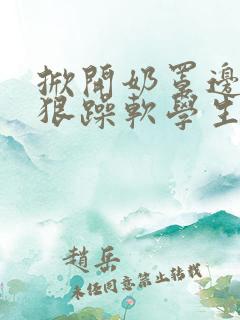 掀開奶罩邊
狠躁軟學生
趙岳
未任同意禁止轉載